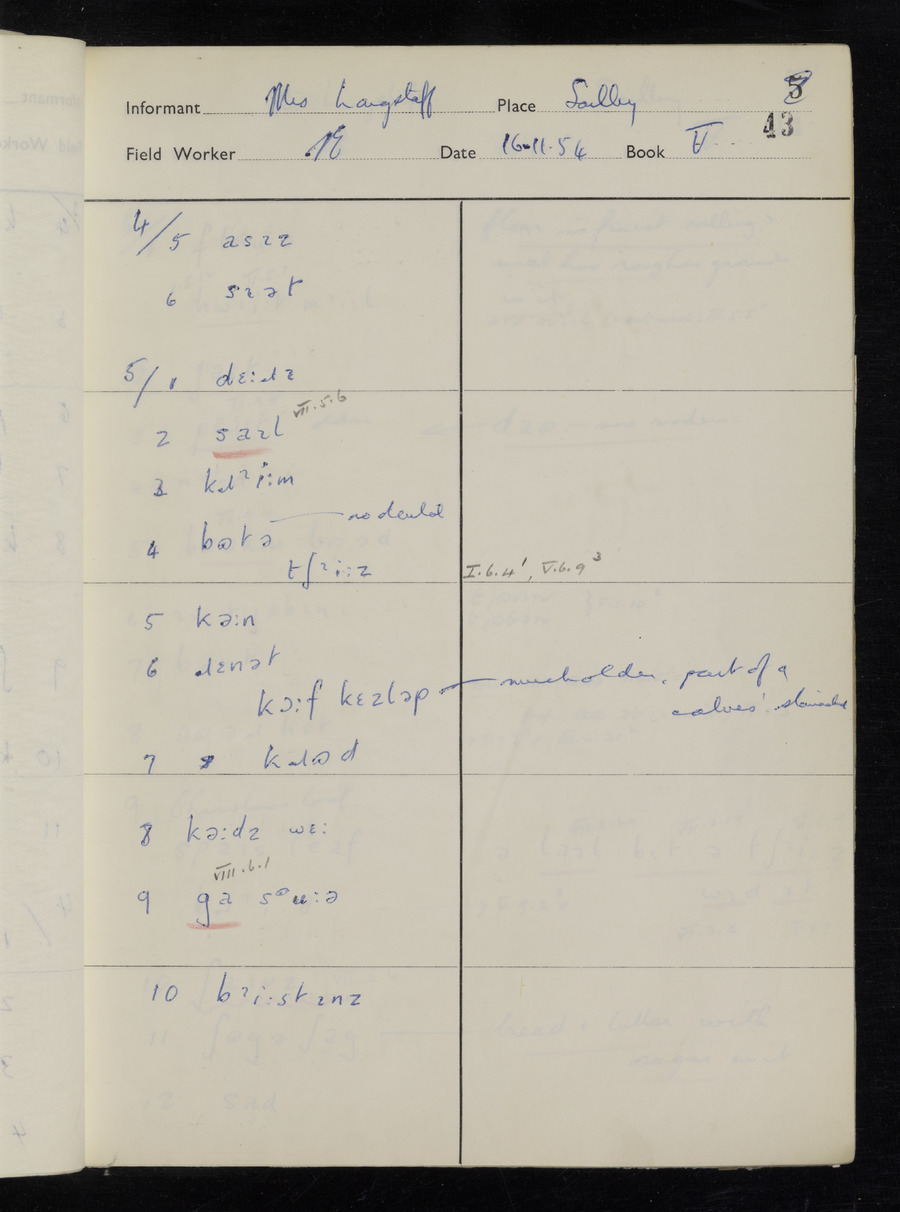 Informant Mrs Langstaff Place Sawley 5
43
Field Worker Date 16.11.54 Book V
4/5 asɪz
6 sɪət
5/1 dɛ:ɹɪ
VII.5.6
2 saɪl
3 kɹᵊi:m
4 bʊtə no dental
tʃᵊi:z I.6.4¹, V.6.9³
5 kə:n
6 ɹɛnət
kɔ:f kɛzləp part of a
calves' stomach
7 kɹʊd
8 kə:dz wɛ:
VIII.6.1
9 ga sᵊu:ə
10 bᵊi:stɪnz